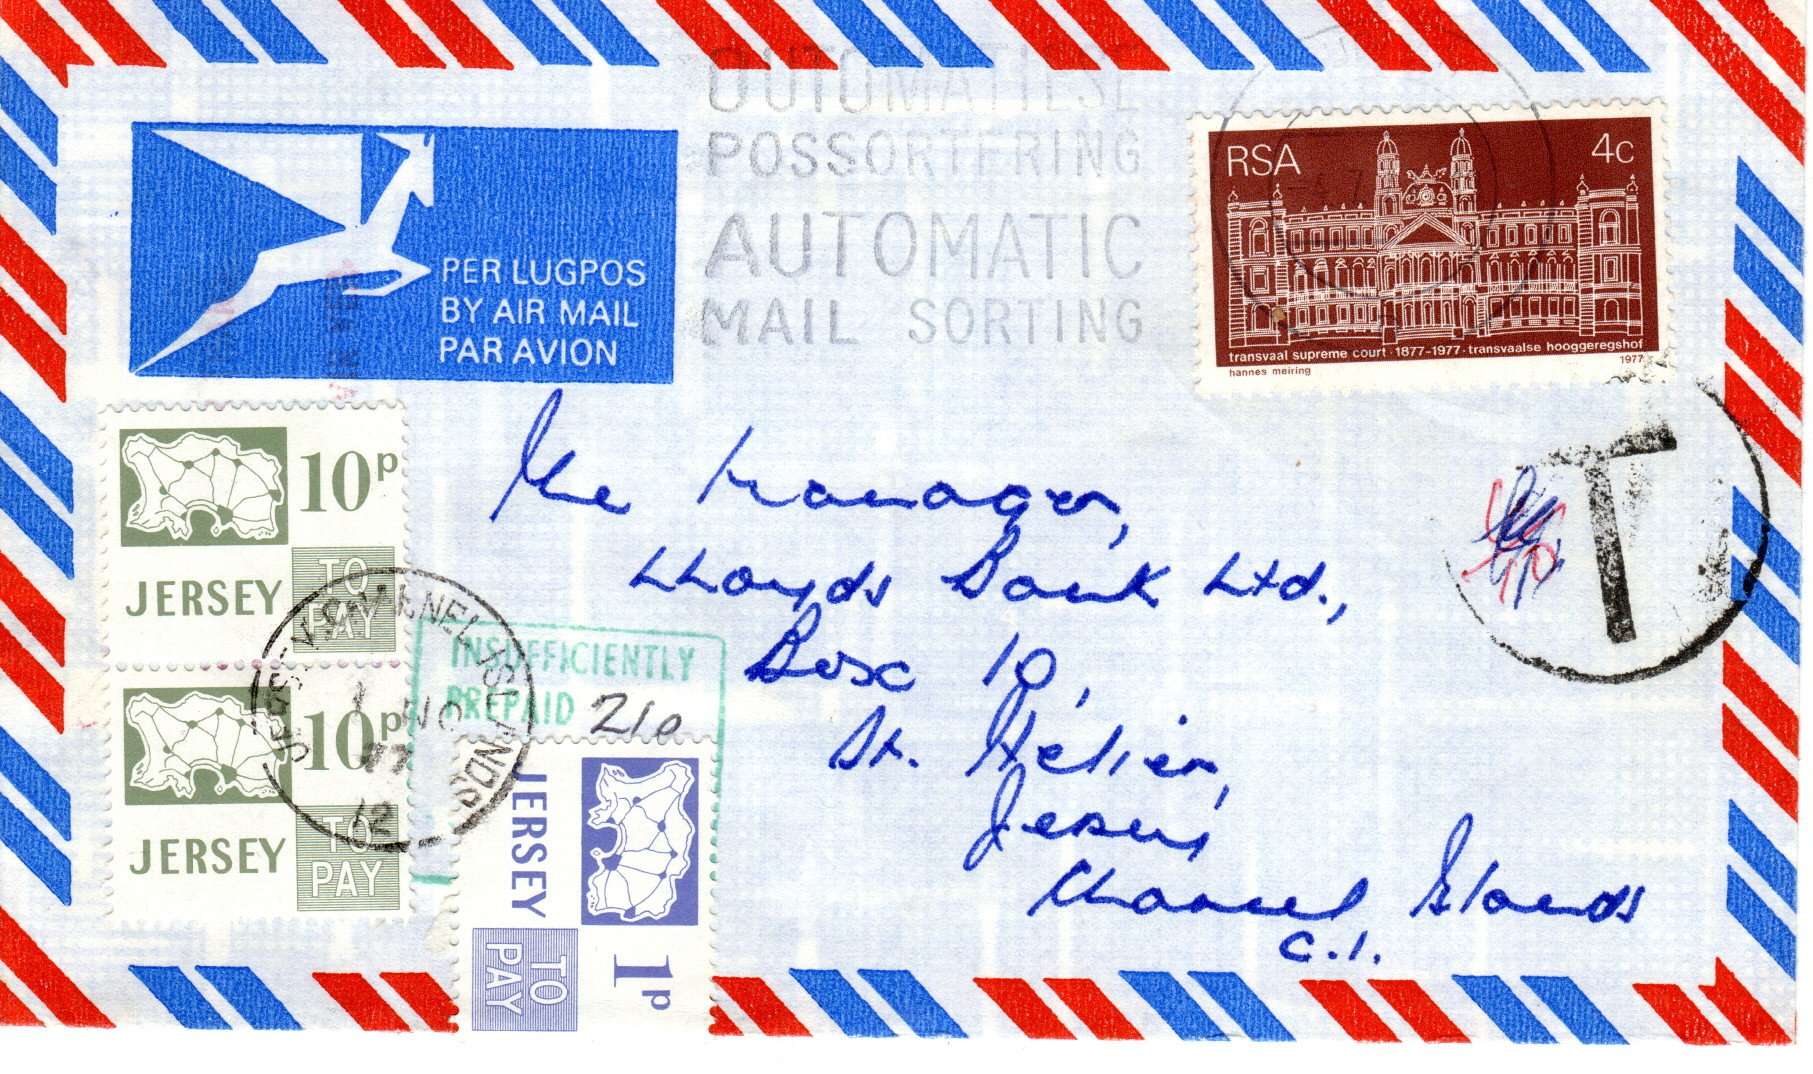 OUTOMATIESE
POSSORTERING
AUTOMATIC
MAIL SORTING
RSA 4c
transvaal supreme court · 1877-1977 · transvaalse hooggeregshof
1977
hannes meiring
PER LUGPOS
BY AIR MAIL
PAR AVION
T
10p
JERSEY
TO
PAY
10p
JERSEY
TO
PAY
CHANNEL ISLANDS
1 NO
77
12
INSUFFICIENTLY
PREPAID 21p
JERSEY
1p
TO
PAY
The Manager,
Lloyds Bank Ltd.,
Box 10,
St. Helier,
Jersey,
Channel Islands
C.I.